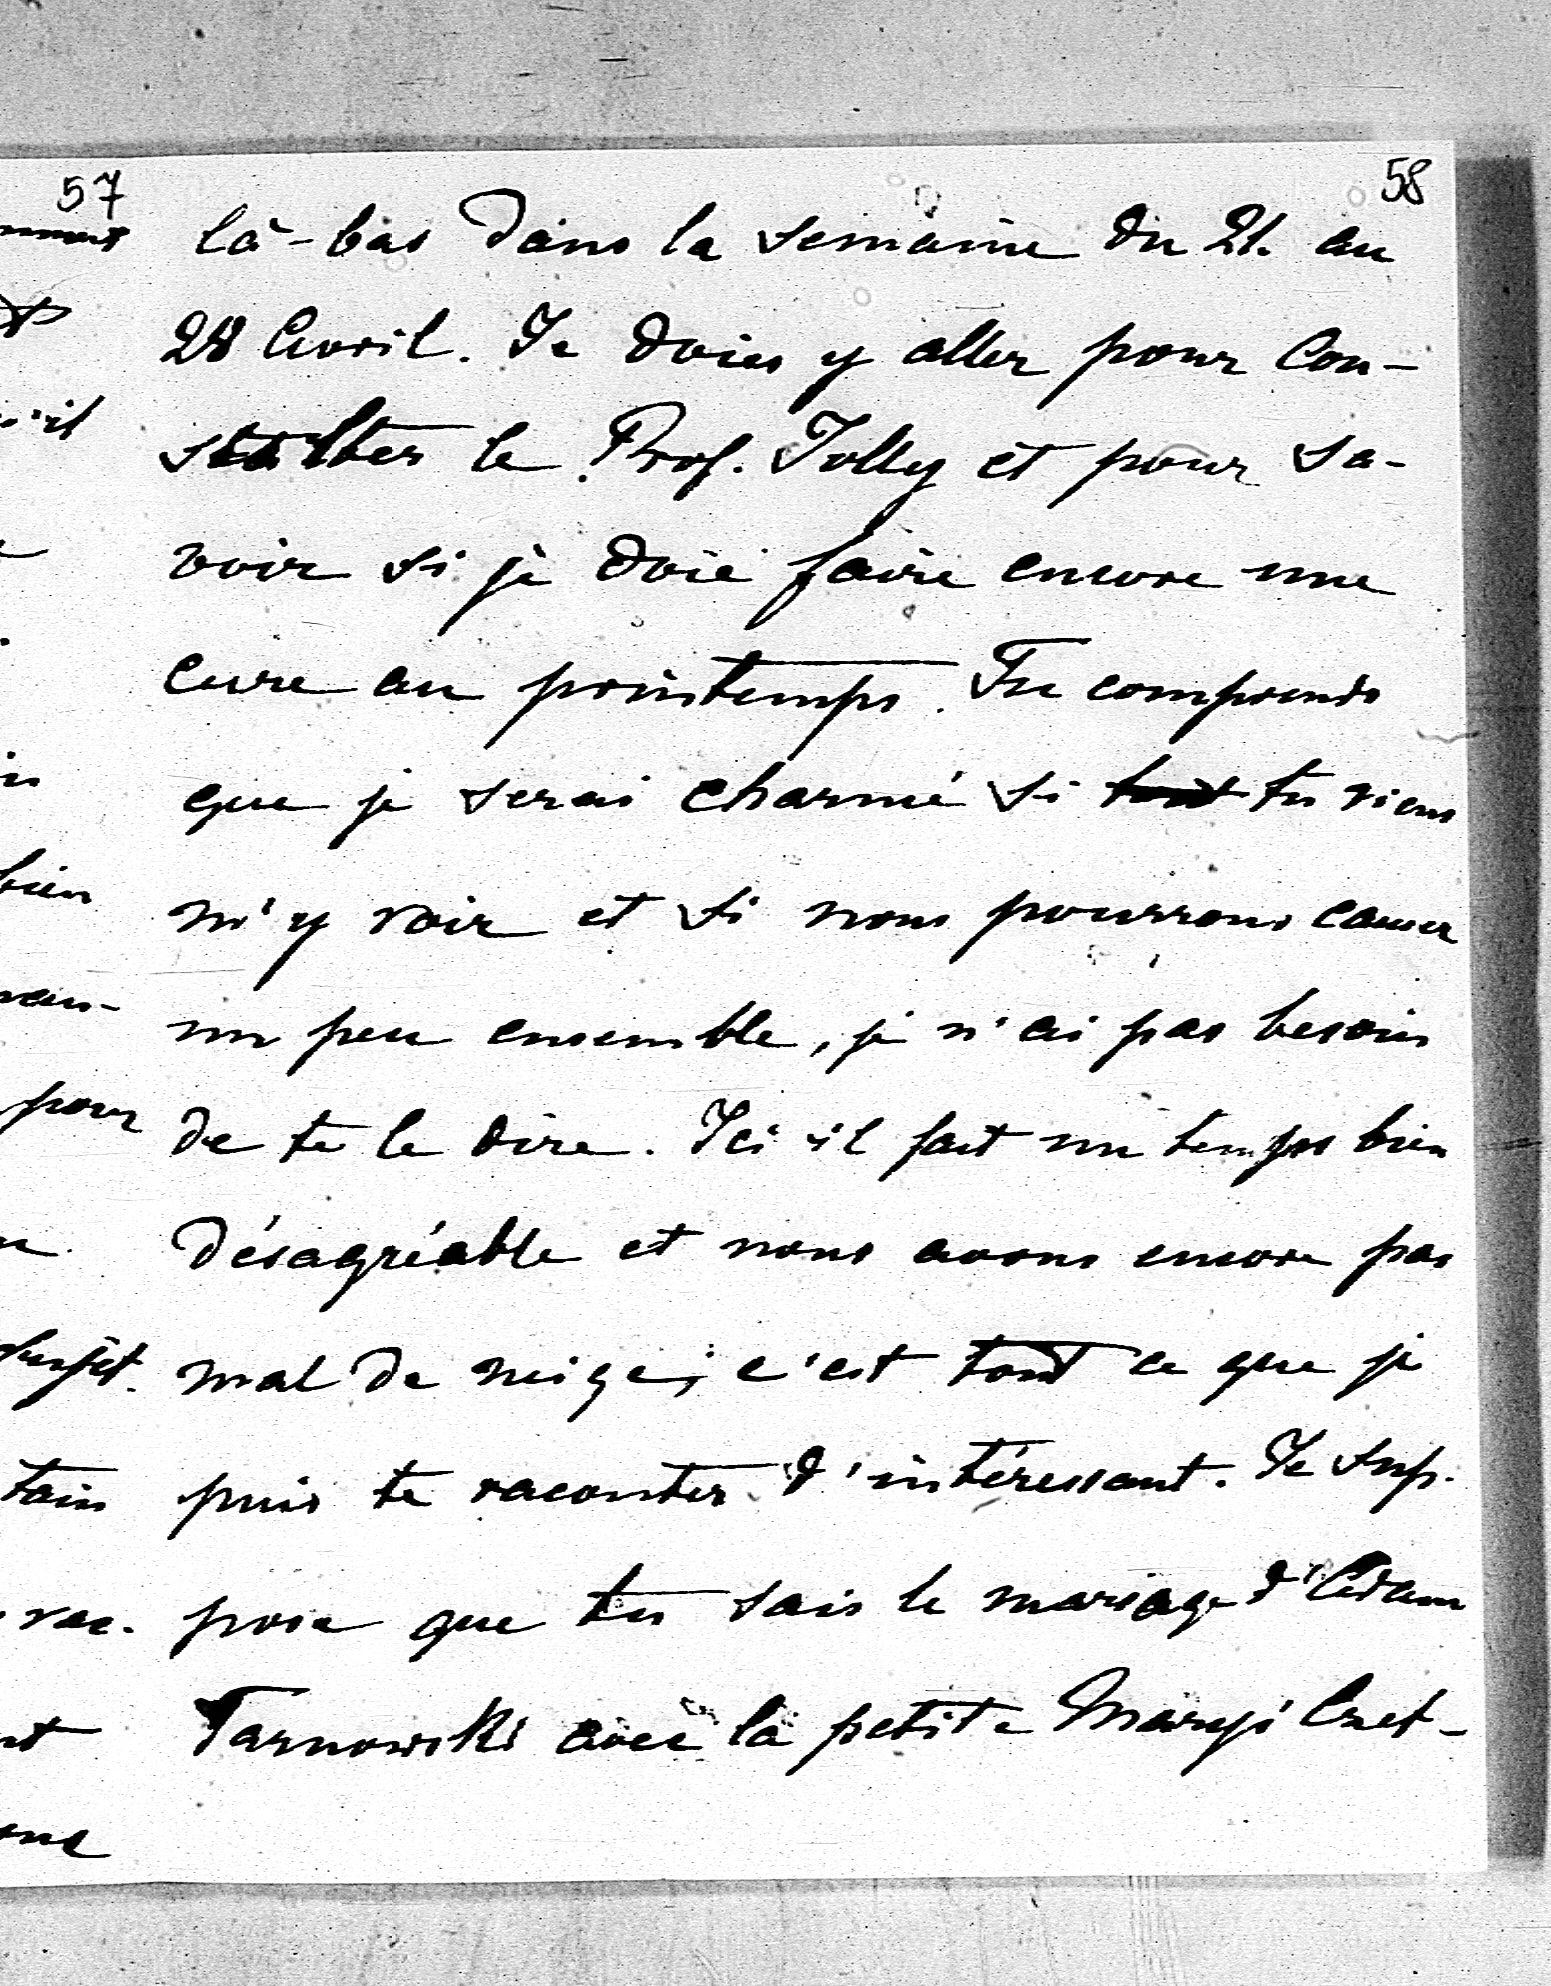 57
58
là-bas dans la semaine du 21. au
28 Avril. Je dois y aller pour con-
sulter le Prof. Jolly et pour sa-
voir si je dois faire encore une
cure au printemps. Tu comprends
que je serai charmé si tout tu viens
m'y voir et si nous pourrons causer
un peu ensemble, je n'ai pas besoin
de te le dire. Ici il fait un temps bien
désagréable et nous avons encore pas
mal de neige; c'est tout ce que je
puis te raconter d'intéressant. Je sup-
pose que tu sais le mariage d'Adam
Tarnowski avec la petite
bien
pour
sujet.
tain